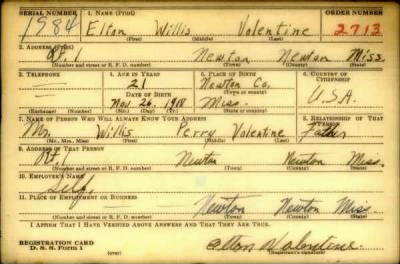 SERIAL NUMBER 1. NAME (Print) ORDER NUMBER
1984 Elton Willis Valentine 2713
(First) (Middle) (Last)
2. ADDRESS (Print)
Rt. 1 Newton Newton Miss.
(Number and street or R. F. D. number) (Town) (County) (State)
3. TELEPHONE 4. AGE IN YEARS 5. PLACE OF BIRTH 6. COUNTRY OF CITIZENSHIP
21 Newton Co.
DATE OF BIRTH (Town or county)
Nov. 26, 1918 Miss. U.S.A.
(Exchange) (Number) (Mo.) (Day) (Yr.) (State or country)
7. NAME OF PERSON WHO WILL ALWAYS KNOW YOUR ADDRESS 8. RELATIONSHIP OF THAT PERSON
Mr. Willis Perry Valentine Father
(Mr., Mrs., Miss) (First) (Middle) (Last)
9. ADDRESS OF THAT PERSON
Rt. 1 Newton Newton Miss.
(Number and street or R. F. D. number) (Town) (County) (State)
10. EMPLOYER'S NAME
Self
11. PLACE OF EMPLOYMENT OR BUSINESS
Newton Newton Miss.
(Number and street or R. F. D. number) (Town) (County) (State)
I AFFIRM THAT I HAVE VERIFIED ABOVE ANSWERS AND THAT THEY ARE TRUE.
REGISTRATION CARD
D. S. S. Form 1 (over) Elton Valentine
(Registrant's signature)